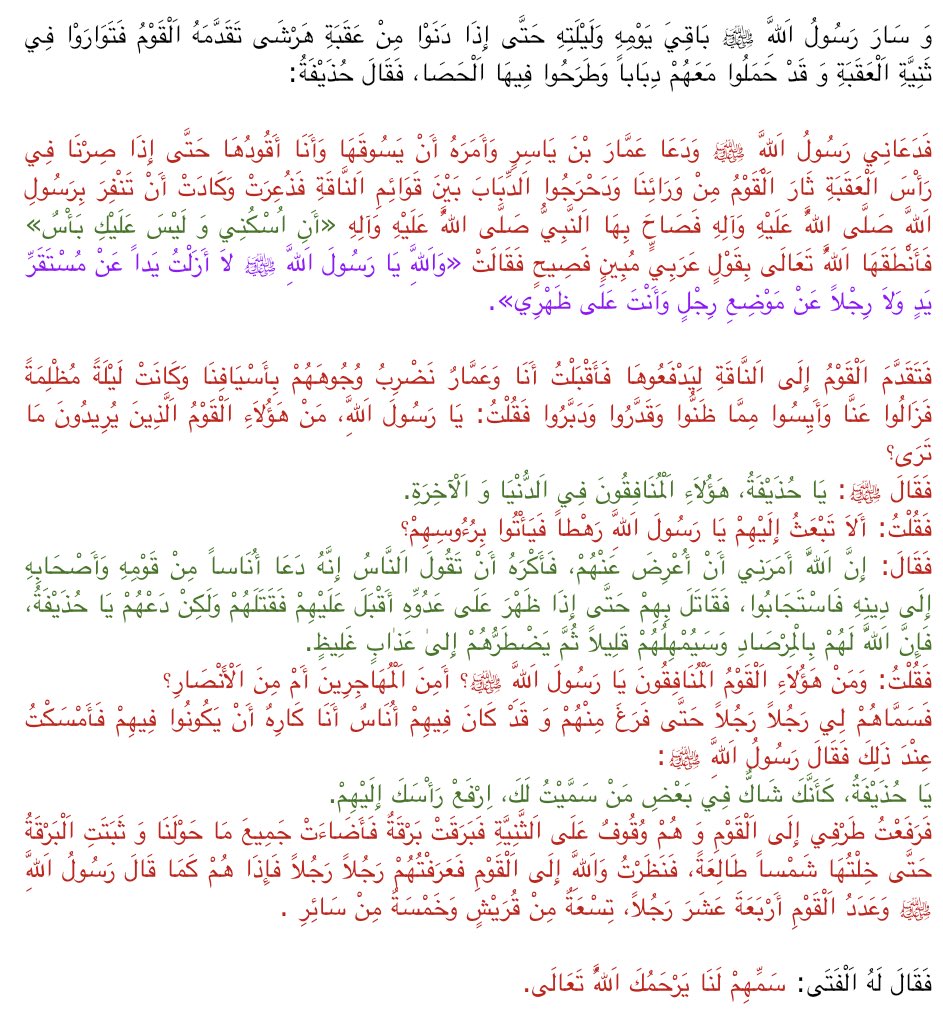 وَ سَارَ رَسُولُ اَللَّهِ ﷺ بَاقِيَ يَوْمِهِ وَلَيْلَتِهِ حَتَّى إِذَا دَنَوْا مِنْ عَقَبَةِ هَرْشَى تَقَدَّمَهُ اَلْقَوْمُ فَتَوَارَوْا فِي
ثَنِيَّةِ اَلْعَقَبَةِ وَ قَدْ حَمَلُوا مَعَهُمْ دِبَاباً وَطَرَحُوا فِيهَا اَلْحَصَا، فَقَالَ حُذَيْفَةُ:
فَدَعَانِي رَسُولُ اَللَّهِ ﷺ وَدَعَا عَمَّارَ بْنَ يَاسِرٍ وَأَمَرَهُ أَنْ يَسُوقَهَا وَأَنَا أَقُودُهَا حَتَّى إِذَا صِرْنَا فِي
رَأْسَ اَلْعَقَبَةِ ثَارَ اَلْقَوْمُ مِنْ وَرَائِنَا وَدَحْرَجُوا اَلدِّبَابَ بَيْنَ قَوَائِمِ اَلنَّاقَةِ فَذُعِرَتْ وَكَادَتْ أَنْ تَنْفِرَ بِرَسُولِ
اَللَّهِ صَلَّى اَللهُ عَلَيْهِ وَآلِهِ فَصَاحَ بِهَا اَلنَّبِيُّ صَلَّى اَللَّهُ عَلَيْهِ وَآلِهِ «أَنِ اُسْكُنِي وَ لَيْسَ عَلَيْكِ بَأْسٌ»
فَأَنْطَقَهَا اَللَّهُ تَعَالَى بِقَوْلٍ عَرَبِيٍ مُبِينٍ فَصِيحٍ فَقَالَتْ «وَاَللَّهِ يَا رَسُولَ اَللَّهِ ﷺ لاَ أَزَلْتُ يَداً عَنْ مُسْتَقَرِّ
يَدٍ وَلاَ رِجْلاً عَنْ مَوْضِعِ رِجْلٍ وَأَنْتَ عَلَى ظَهْرِي».
فَتَقَدَّمَ اَلْقَوْمُ إِلَى اَلنَّاقَةِ لِيَدْفَعُوهَا فَأَقْبَلْتُ أَنَا وَعَمَّارٌ نَضْرِبُ وُجُوهَهُمْ بِأَسْيَافِنَا وَكَانَتْ لَيْلَةً مُظْلِمَةً
فَزَالُوا عَنَّا وَأَيِسُوا مِمَّا ظَنُّوا وَقَدَّرُوا وَدَبَّرُوا فَقُلْتُ: يَا رَسُولَ اَللَّهِ، مَنْ هَؤُلاَءِ اَلْقَوْمُ اَلَّذِينَ يُرِيدُونَ مَا
تَرَى؟
فَقَالَ ﷺ: يَا حُذَيْفَةُ، هَؤُلاَءِ اَلْمُنَافِقُونَ فِي اَلدُّنْيَا وَ اَلْآخِرَةِ.
فَقُلْتُ: أَلاَ تَبْعَثُ إِلَيْهِمْ يَا رَسُولَ اَللَّهِ رَهْطاً فَيَأْتُوا بِرُءُوسِهِمْ؟
فَقَالَ: إِنَّ اَللَّهَ أَمَرَنِي أَنْ أُعْرِضَ عَنْهُمْ، فَأَكْرَهُ أَنْ تَقُولَ اَلنَّاسُ إِنَّهُ دَعَا أُنَاساً مِنْ قَوْمِهِ وَأَصْحَابِهِ
إِلَى دِينِهِ فَاسْتَجَابُوا، فَقَاتَلَ بِهِمْ حَتَّى إِذَا ظَهَرَ عَلَى عَدُوِّهِ أَقْبَلَ عَلَيْهِمْ فَقَتَلَهُمْ وَلَكِنْ دَعْهُمْ يَا حُذَيْفَةُ،
فَإِنَّ اَللَّهَ لَهُمْ بِالْمِرْصَادِ وَسَيُمْهِلُهُمْ قَلِيلاً ثُمَّ يَضْطَرُّهُمْ إِلىٰ عَذٰابٍ غَلِيظٍ.
فَقُلْتُ: وَمَنْ هَؤُلاَءِ اَلْقَوْمُ اَلْمُنَافِقُونَ يَا رَسُولَ اَللَّهِ ﷺ؟ أَمِنَ اَلْمُهَاجِرِينَ أَمْ مِنَ اَلْأَنْصَارِ؟
فَسَمَّاهُمْ لِي رَجُلاً رَجُلاً حَتَّى فَرَغَ مِنْهُمْ وَ قَدْ كَانَ فِيهِمْ أُنَاسٌ أَنَا كَارِهٌ أَنْ يَكُونُوا فِيهِمْ فَأَمْسَكْتُ
عِنْدَ ذَلِكَ فَقَالَ رَسُولُ اَللَّهِ ﷺ:
يَا حُذَيْفَةُ، كَأَنَّكَ شَاكٌّ فِي بَعْضِ مَنْ سَمَّيْتُ لَكَ، اِرْفَعْ رَأْسَكَ إِلَيْهِمْ.
فَرَفَعْتُ طَرْفِي إِلَى اَلْقَوْمِ وَ هُمْ وُقُوفٌ عَلَى اَلثَّنِيَّةِ فَبَرَقَتْ بَرْقَةٌ فَأَضَاءَتْ جَمِيعَ مَا حَوْلَنَا وَ ثَبَتَتِ اَلْبَرْقَةُ
حَتَّى خِلْتُهَا شَمْساً طَالِعَةً، فَنَظَرْتُ وَاَللَّهِ إِلَى اَلْقَوْمِ فَعَرَفْتُهُمْ رَجُلاً رَجُلاً فَإِذَا هُمْ كَمَا قَالَ رَسُولُ اَللَّهِ
ﷺ وَعَدَدُ اَلْقَوْمِ أَرْبَعَةَ عَشَرَ رَجُلاً، تِسْعَةٌ مِنْ قُرَيْشٍ وَخَمْسَةٌ مِنْ سَائِرِ .
فَقَالَ لَهُ اَلْفَتَى: سَمِّهِمْ لَنَا يَرْحَمُكَ اَللَّهُ تَعَالَى.